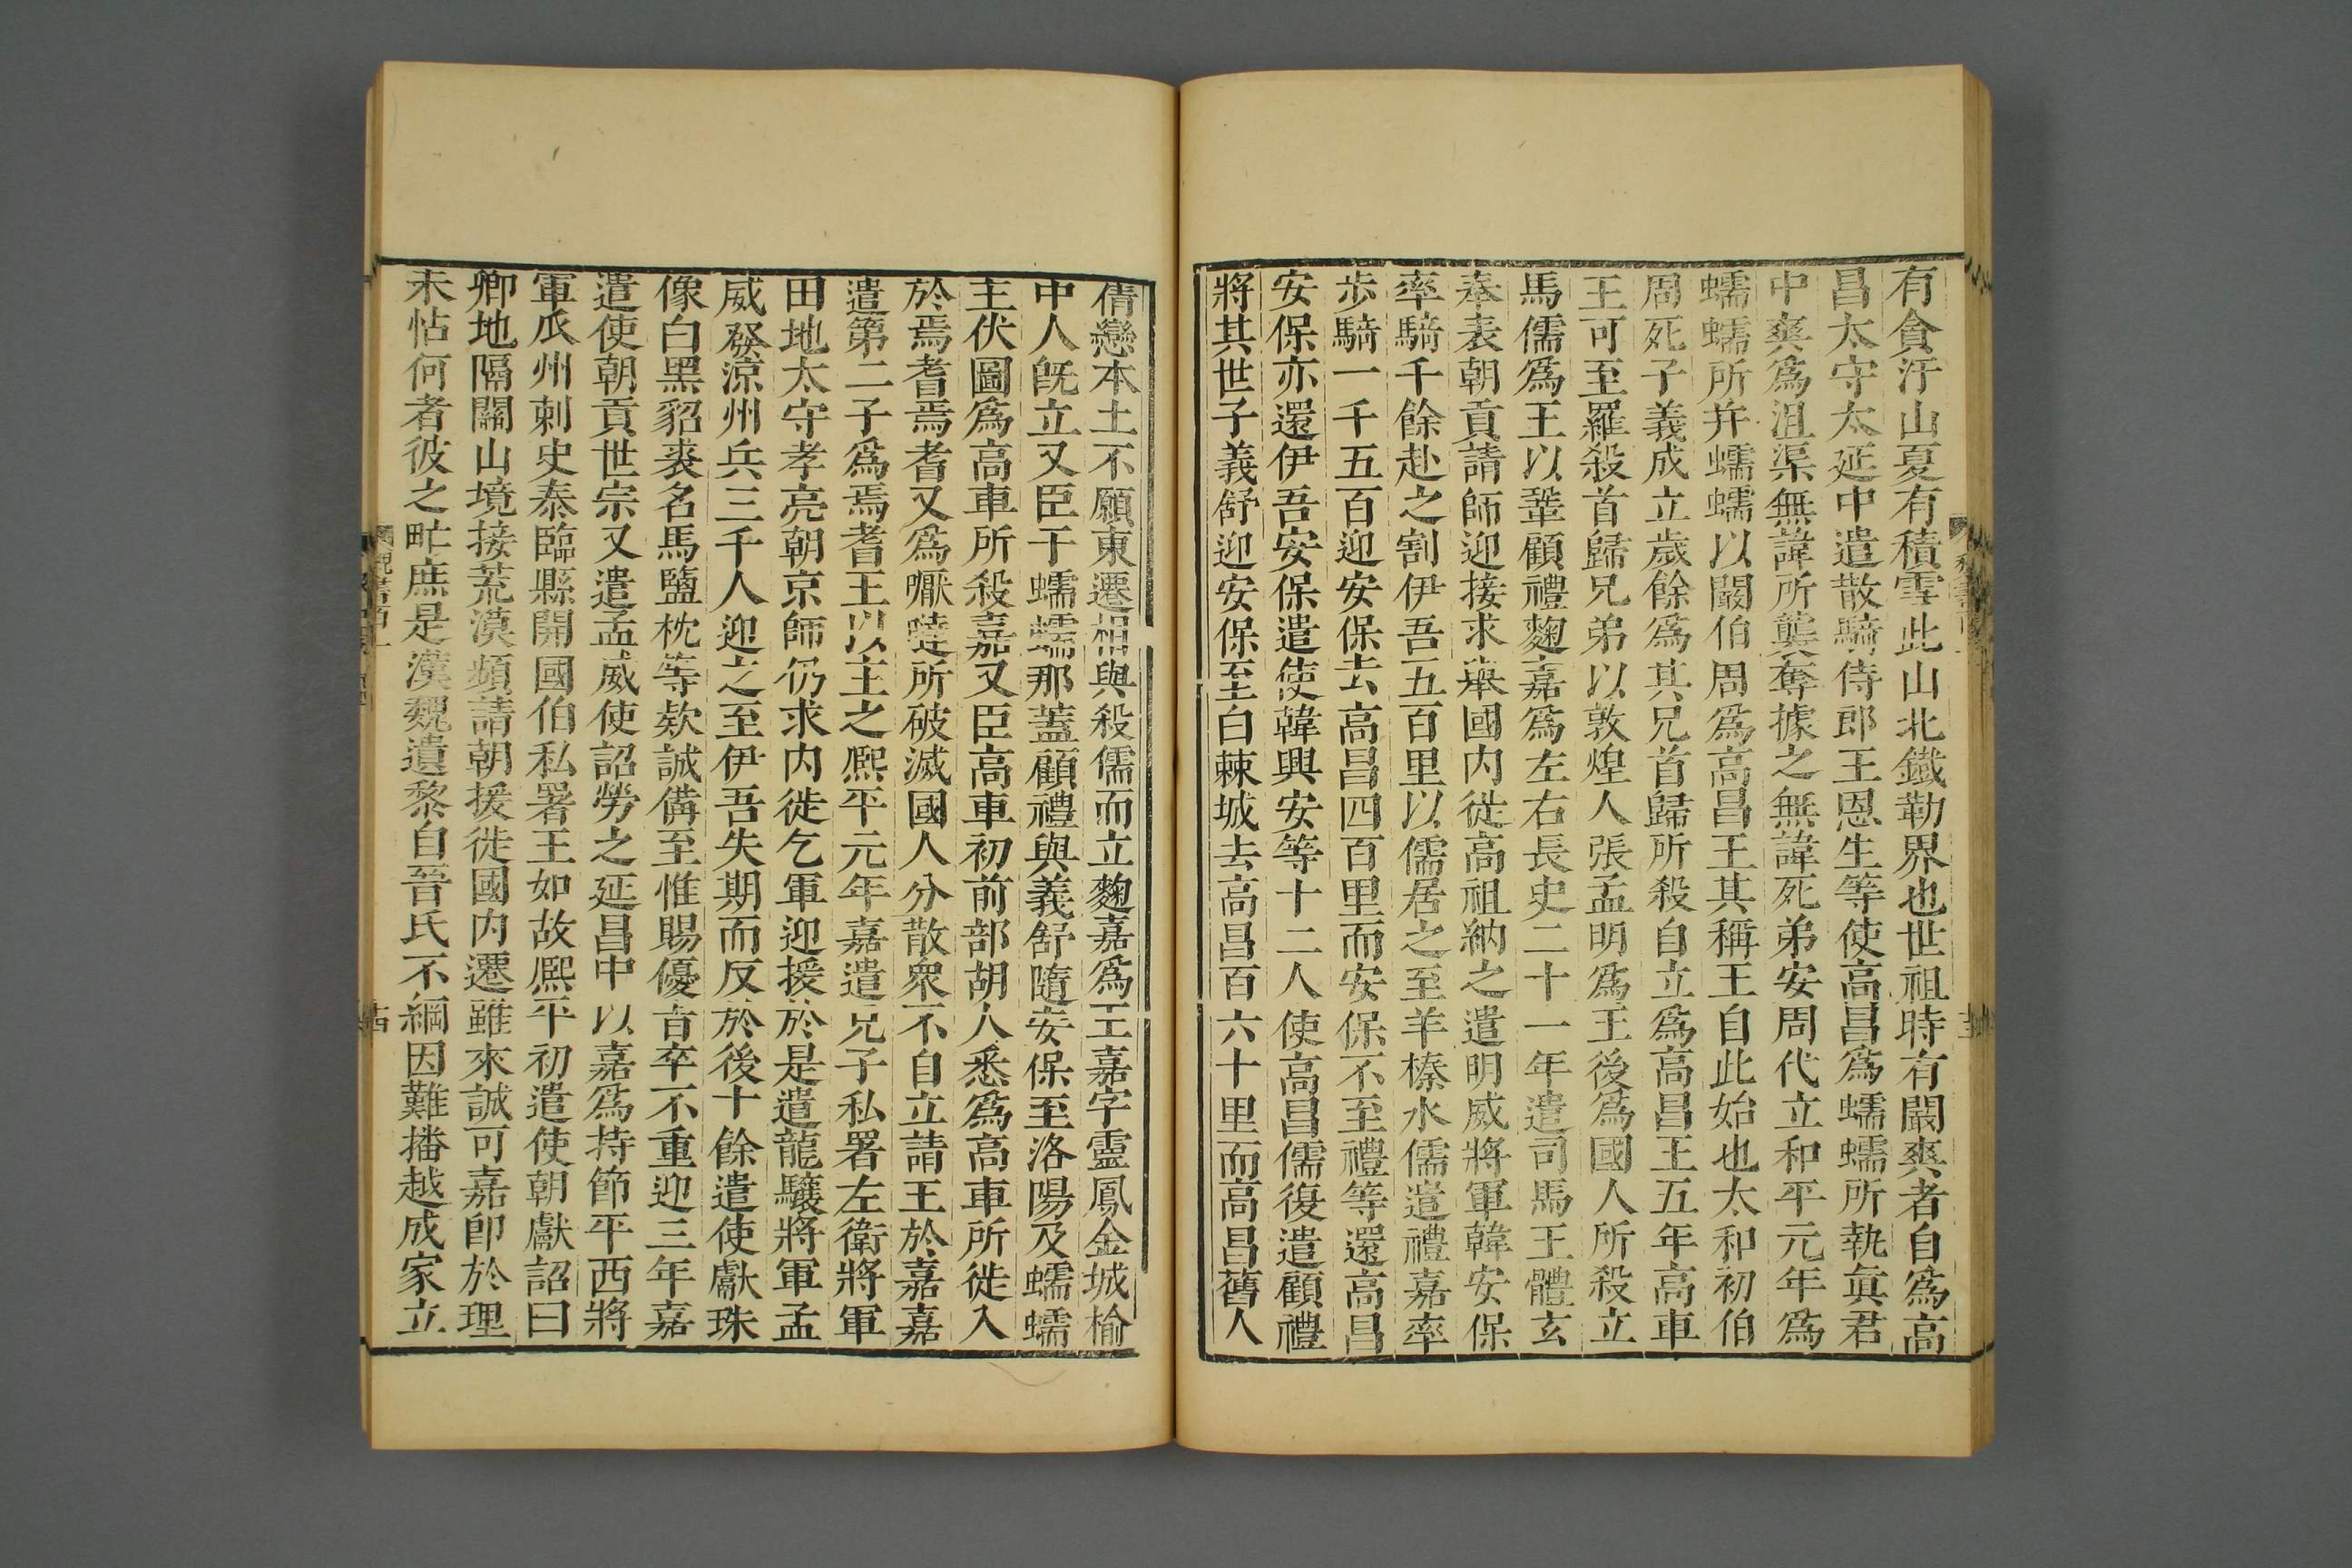 有貪汗山夏有積雪此山北鐵勒界也世祖時有闞爽者自爲高
昌太守太延中遣散騎侍郎王恩生等使高昌爲蠕蠕所執眞君
中爽爲沮渠無諱所襲奪據之無諱死弟安周代立和平元年爲
蠕蠕所并蠕蠕以闞伯周爲高昌王其稱王自此始也太和初伯
周死子義成立歲餘爲其兄首歸所殺自立爲高昌王五年高車
王可至羅殺首歸兄弟以敦煌人張孟明爲王後爲國人所殺立
馬儒爲王以鞏顧禮麴嘉爲左右長史二十一年遣司馬王體玄
奉表朝貢請師迎接求舉國內徙高祖納之遣明威將軍韓安保
率騎千餘赴之割伊吾五百里以儒居之至羊榛水儒遣禮嘉率
步騎一千五百迎安保去高昌四百里而安保不至禮等還高昌
安保亦還伊吾安保遣使韓興安等十二人使高昌儒復遣顧禮
將其世子義舒迎安保至白棘城去高昌百六十里而高昌舊人
情戀本土不願東遷相與殺儒而立麴嘉爲王嘉字靈鳳金城榆
中人旣立又臣于蠕蠕那蓋顧禮與義舒隨安保至洛陽及蠕蠕
主伏圖爲高車所殺嘉又臣高車初前部胡人悉爲高車所徙入
於焉耆焉耆又爲嚈噠所破滅國人分散衆不自立請王於嘉嘉
遣第二子爲焉耆王以主之熙平元年嘉遣兄子私署左衛將軍
田地太守孝亮朝京師仍求內徙乞軍迎援於是遣龍驤將軍孟
威發涼州兵三千人迎之至伊吾失期而反於後十餘遣使獻珠
像白黑貂裘名馬鹽枕等款誠備至惟賜優旨卒不重迎三年嘉
遣使朝貢世宗又遣孟威使詔勞之延昌中以嘉爲持節平西將
軍瓜州刺史泰臨縣開國伯私署王如故熙平初遣使朝獻詔曰
卿地隔關山境接荒漠頻請朝援徙國內遷雖來誠可嘉卽於理
未帖何者彼之甿庶是漢魏遺黎自晉氏不綱因難播越成家立